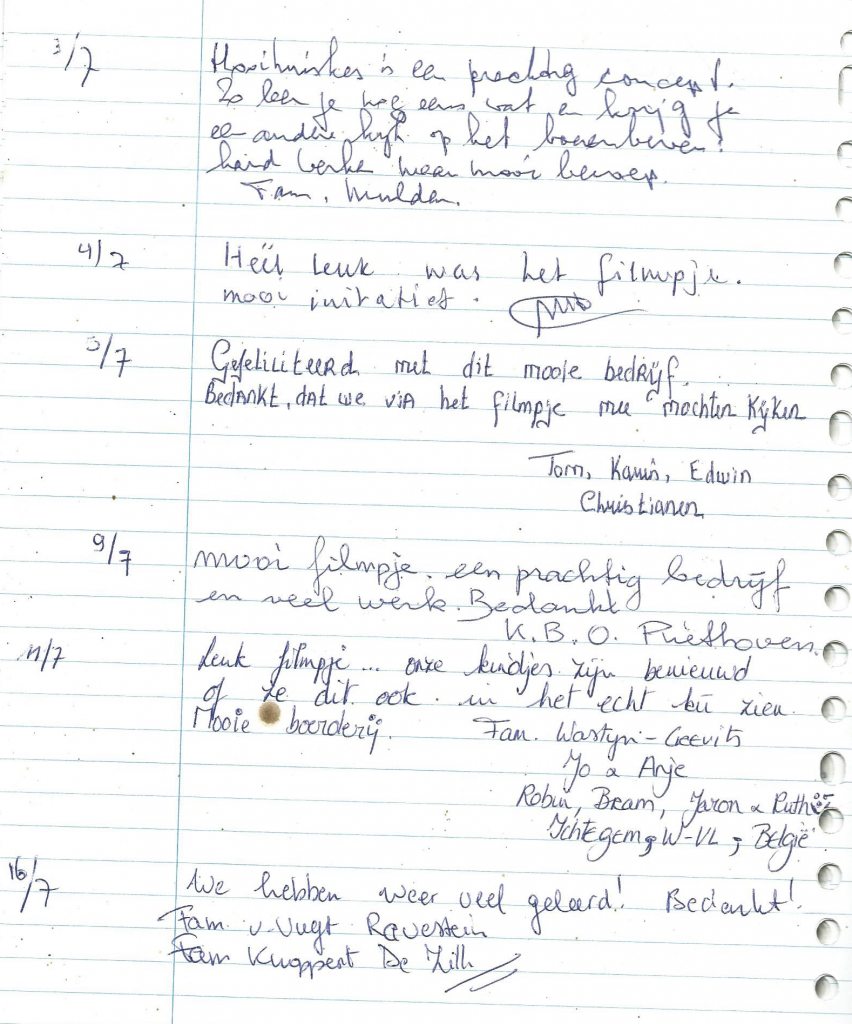 3/7 Hooihuiskes is een prachtig concept.
Zo leer je nog eens wat en krijg je
een andere kijk op het boerenleven!
hard werken maar mooi beroep.
Fam. Mulder.
4/7 Heël leuk was het filmpje.
mooi initatief.
5/7 Gefeliciteerd met dit mooie bedrijf.
Bedankt, dat we via het filmpje mee mochten kijken
Tom, Karin, Edwin
Christianen
9/7 mooi filmpje. een prachtig bedrijf
en veel werk. Bedankt
K.B.O. Riethoven.
11/7 Leuk filmpje... onze kindjes zijn benieuwd
of ze dit ook in het echt zien.
Mooie boerderij. Fam. Wastyn-Geevits
Jo & Anje
Robin, Bram, Jaron &
Ichtegem, W-VL, België
16/7 We hebben weer veel geleerd! Bedankt!
Fam v. Vugt Ravestein
Fam Knoppert De